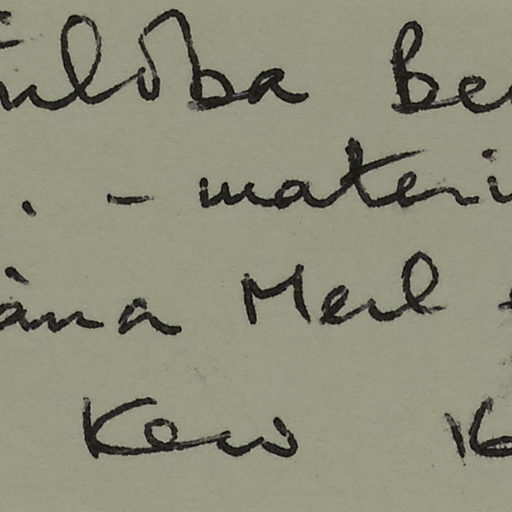 uloba Be
. - materi
ana Merl
Kew 16